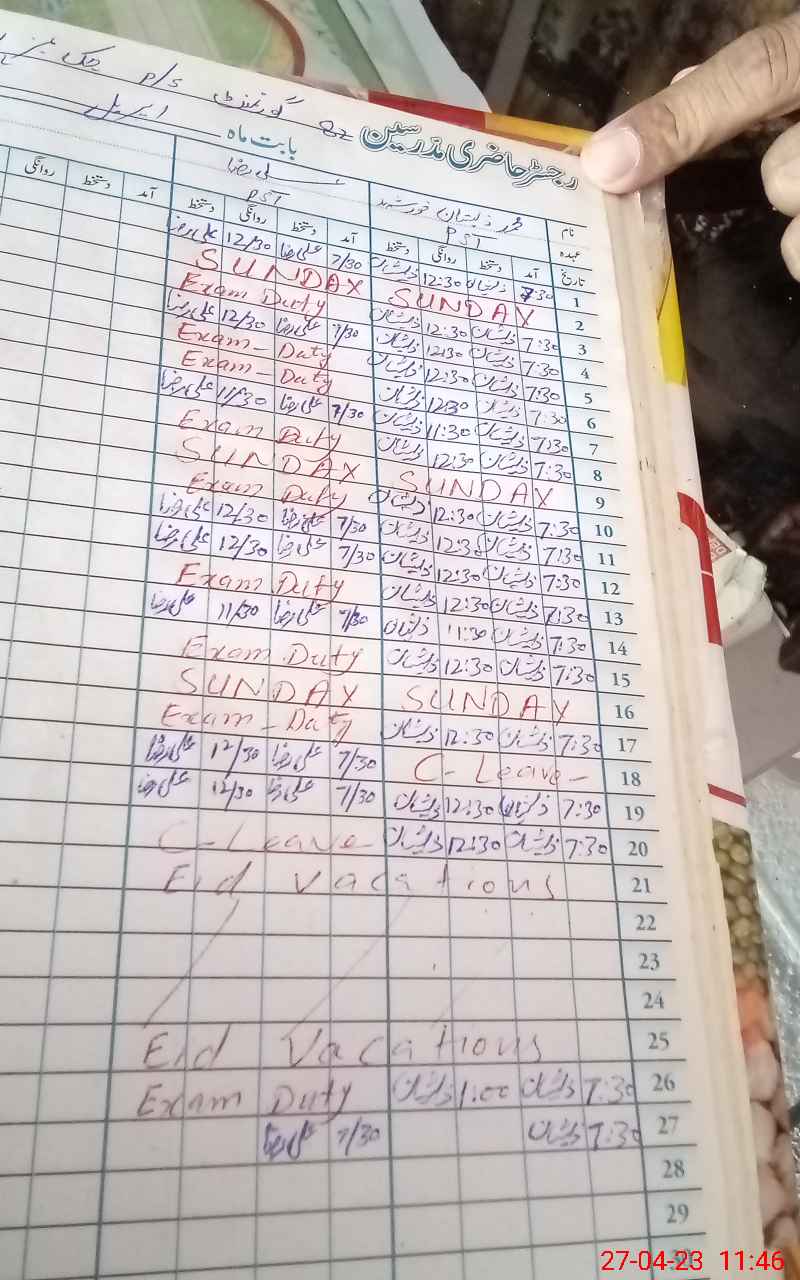 رجسٹر حاضری مدرسین گورنمنٹ P/S چک
بابت ماہ اپریل
نام محمد ذیشان خورشید علی رضا
عہدہ PST PST
تاریخ آمد دستخط روانگی دستخط آمد دستخط روانگی دستخط آمد دستخط روانگی
1 7:30 ذیشان 12:30 ذیشان 7/30 علی رضا 12/30 علی رضا
2 SUNDAY SUNDAY
3 7:30 ذیشان 12:30 ذیشان Exam Duty
4 7:30 ذیشان 12:30 ذیشان 7/30 علی رضا 12/30 علی رضا
5 7:30 ذیشان 12:30 ذیشان Exam - Duty
6 7:30 ذیشان 12:30 ذیشان Exam - Duty
7 7:30 ذیشان 11:30 ذیشان 7/30 علی رضا 11/30 علی رضا
8 7:30 ذیشان 12:30 ذیشان Exam Duty
9 SUNDAY SUNDAY
10 7:30 ذیشان 12:30 ذیشان Exam Duty
11 7:30 ذیشان 12:30 ذیشان 7/30 علی رضا 12/30 علی رضا
12 7:30 ذیشان 12:30 ذیشان 7/30 علی رضا 12/30 علی رضا
13 7:30 ذیشان 12:30 ذیشان Exam Duty
14 7:30 ذیشان 11:30 ذیشان 7/30 علی رضا 11/30 علی رضا
15 7:30 ذیشان 12:30 ذیشان Exam Duty
16 SUNDAY SUNDAY
17 7:30 ذیشان 12:30 ذیشان Exam - Duty
18 C- Leave - 7/30 علی رضا 12/30 علی رضا
19 7:30 ذیشان 12:30 ذیشان 7/30 علی رضا 12/30 علی رضا
20 7:30 ذیشان 12:30 ذیشان C- Leave
21 Eid Vacations
22
23
24
25 Eid Vacations
26 7:30 ذیشان 1:00 ذیشان Exam Duty
27 7:30 ذیشان 7/30 علی رضا
28
29
30
27-04-23 11:46